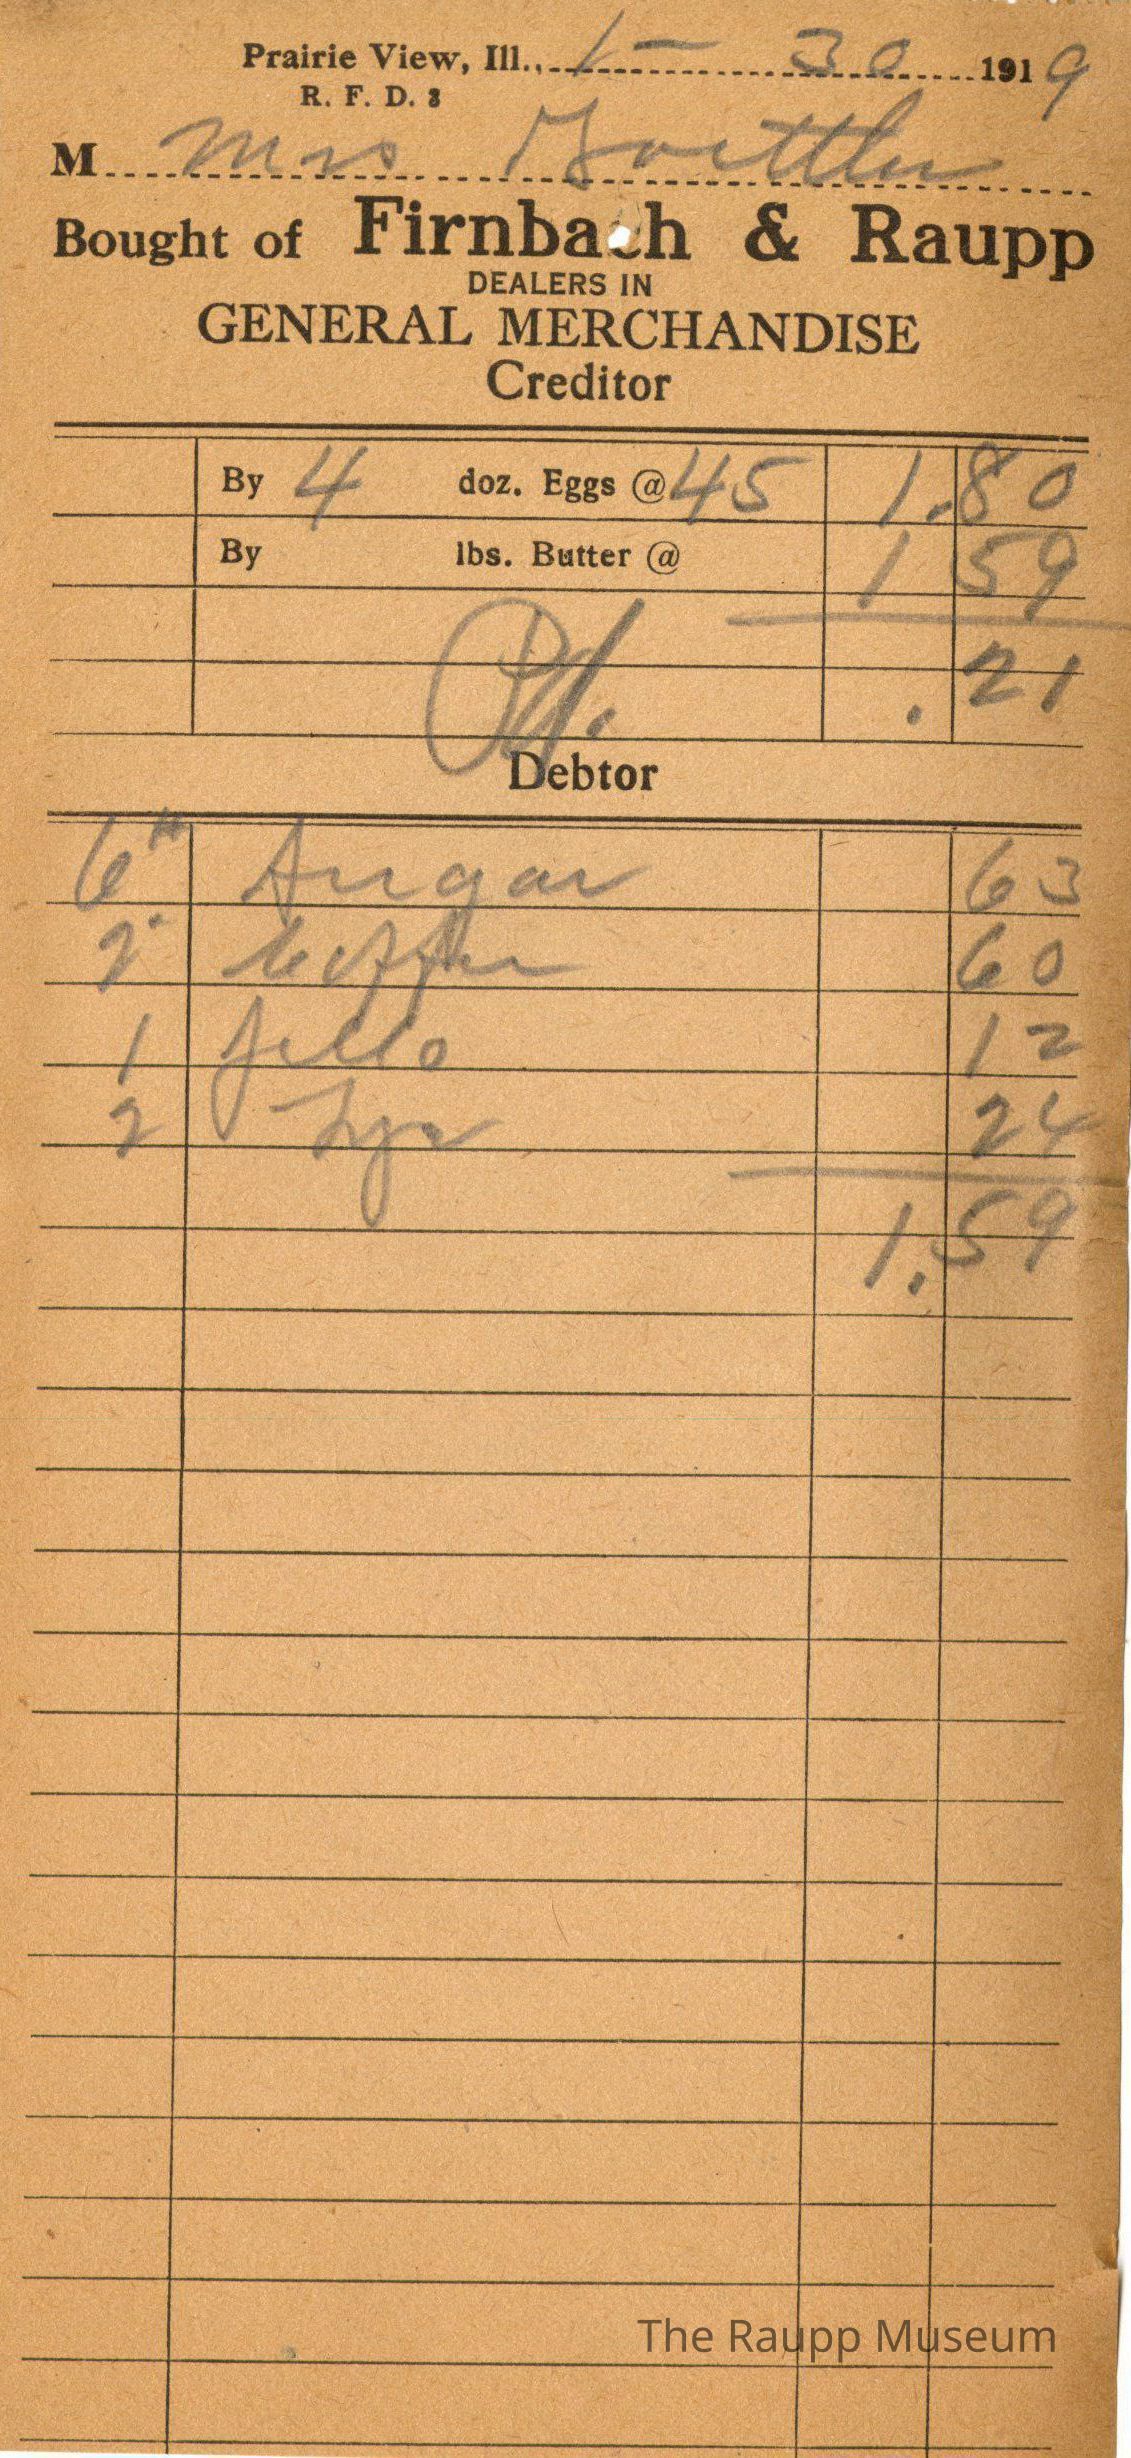 Prairie View, Ill., 1 – 30 1919
R. F. D. 3
M rs
Bought of Firnbach & Raupp
DEALERS IN
GENERAL MERCHANDISE
Creditor
By 4 doz. Eggs @ 45 1.80
By lbs. Butter @ 1 59
Pd. .21
Debtor
6# Sugar 63
2" Coffee 60
1 Jello 12
2 Lye 24
1.59
The Raupp Museum